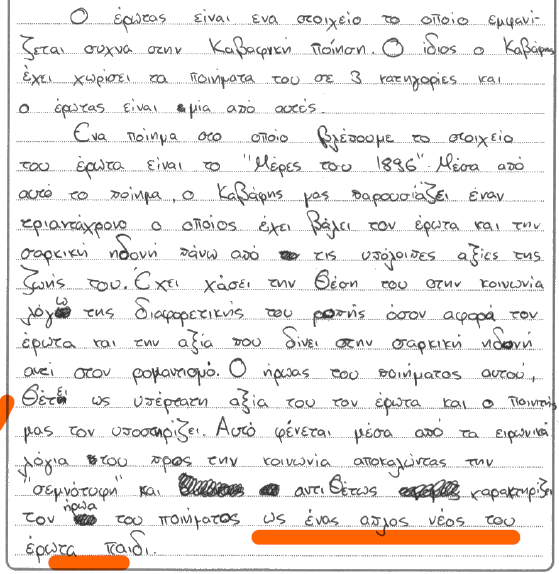 Ο έρωτας είναι ενα στοιχείο το οποίο εμφανί-
ζεται συχνα στην Καβαφική ποίηση. Ο ίδιος ο Καβάφης
έχει χωρίσει τα ποιήματα του σε 3 κατηγορίες και
ο έρωτας είναι μία από αυτές.
Ένα ποίημα στο οποίο βλέπουμε το στοιχείο
του έρωτα είναι το "Μέρες του 1896". Μέσα από
αυτό το ποίημα, ο Καβάφης μας παρουσιάζει έναν
τριαντάχρονο ο οποίος έχει βάλει τον έρωτα και την
σαρκική ηδονή πάνω από τις υπόλοιπες αξίες της
ζωής του. Έχει χάσει την θέση του στην κοινωνία
λόγω της διαφορετικής του ροπής όσον αφορά τον
έρωτα και την αξία που δίνει στην σαρκική ηδονή
αντί στον ρομαντισμό. Ο ήρωας του ποιήματος αυτού,
θέτει ως υπέρτατη αξία του τον έρωτα και ο ποιητής
μας τον υποστηρίζει. Αυτό φένεται μέσα από τα ειρωνικά
λόγια του προς την κοινωνία αποκαλώντας την
"σεμνότυφη" και αντιθέτως χαρακτηρίζει
τον ήρωα του ποιήματος ως ένας απλος νέος του
έρωτα παιδί.